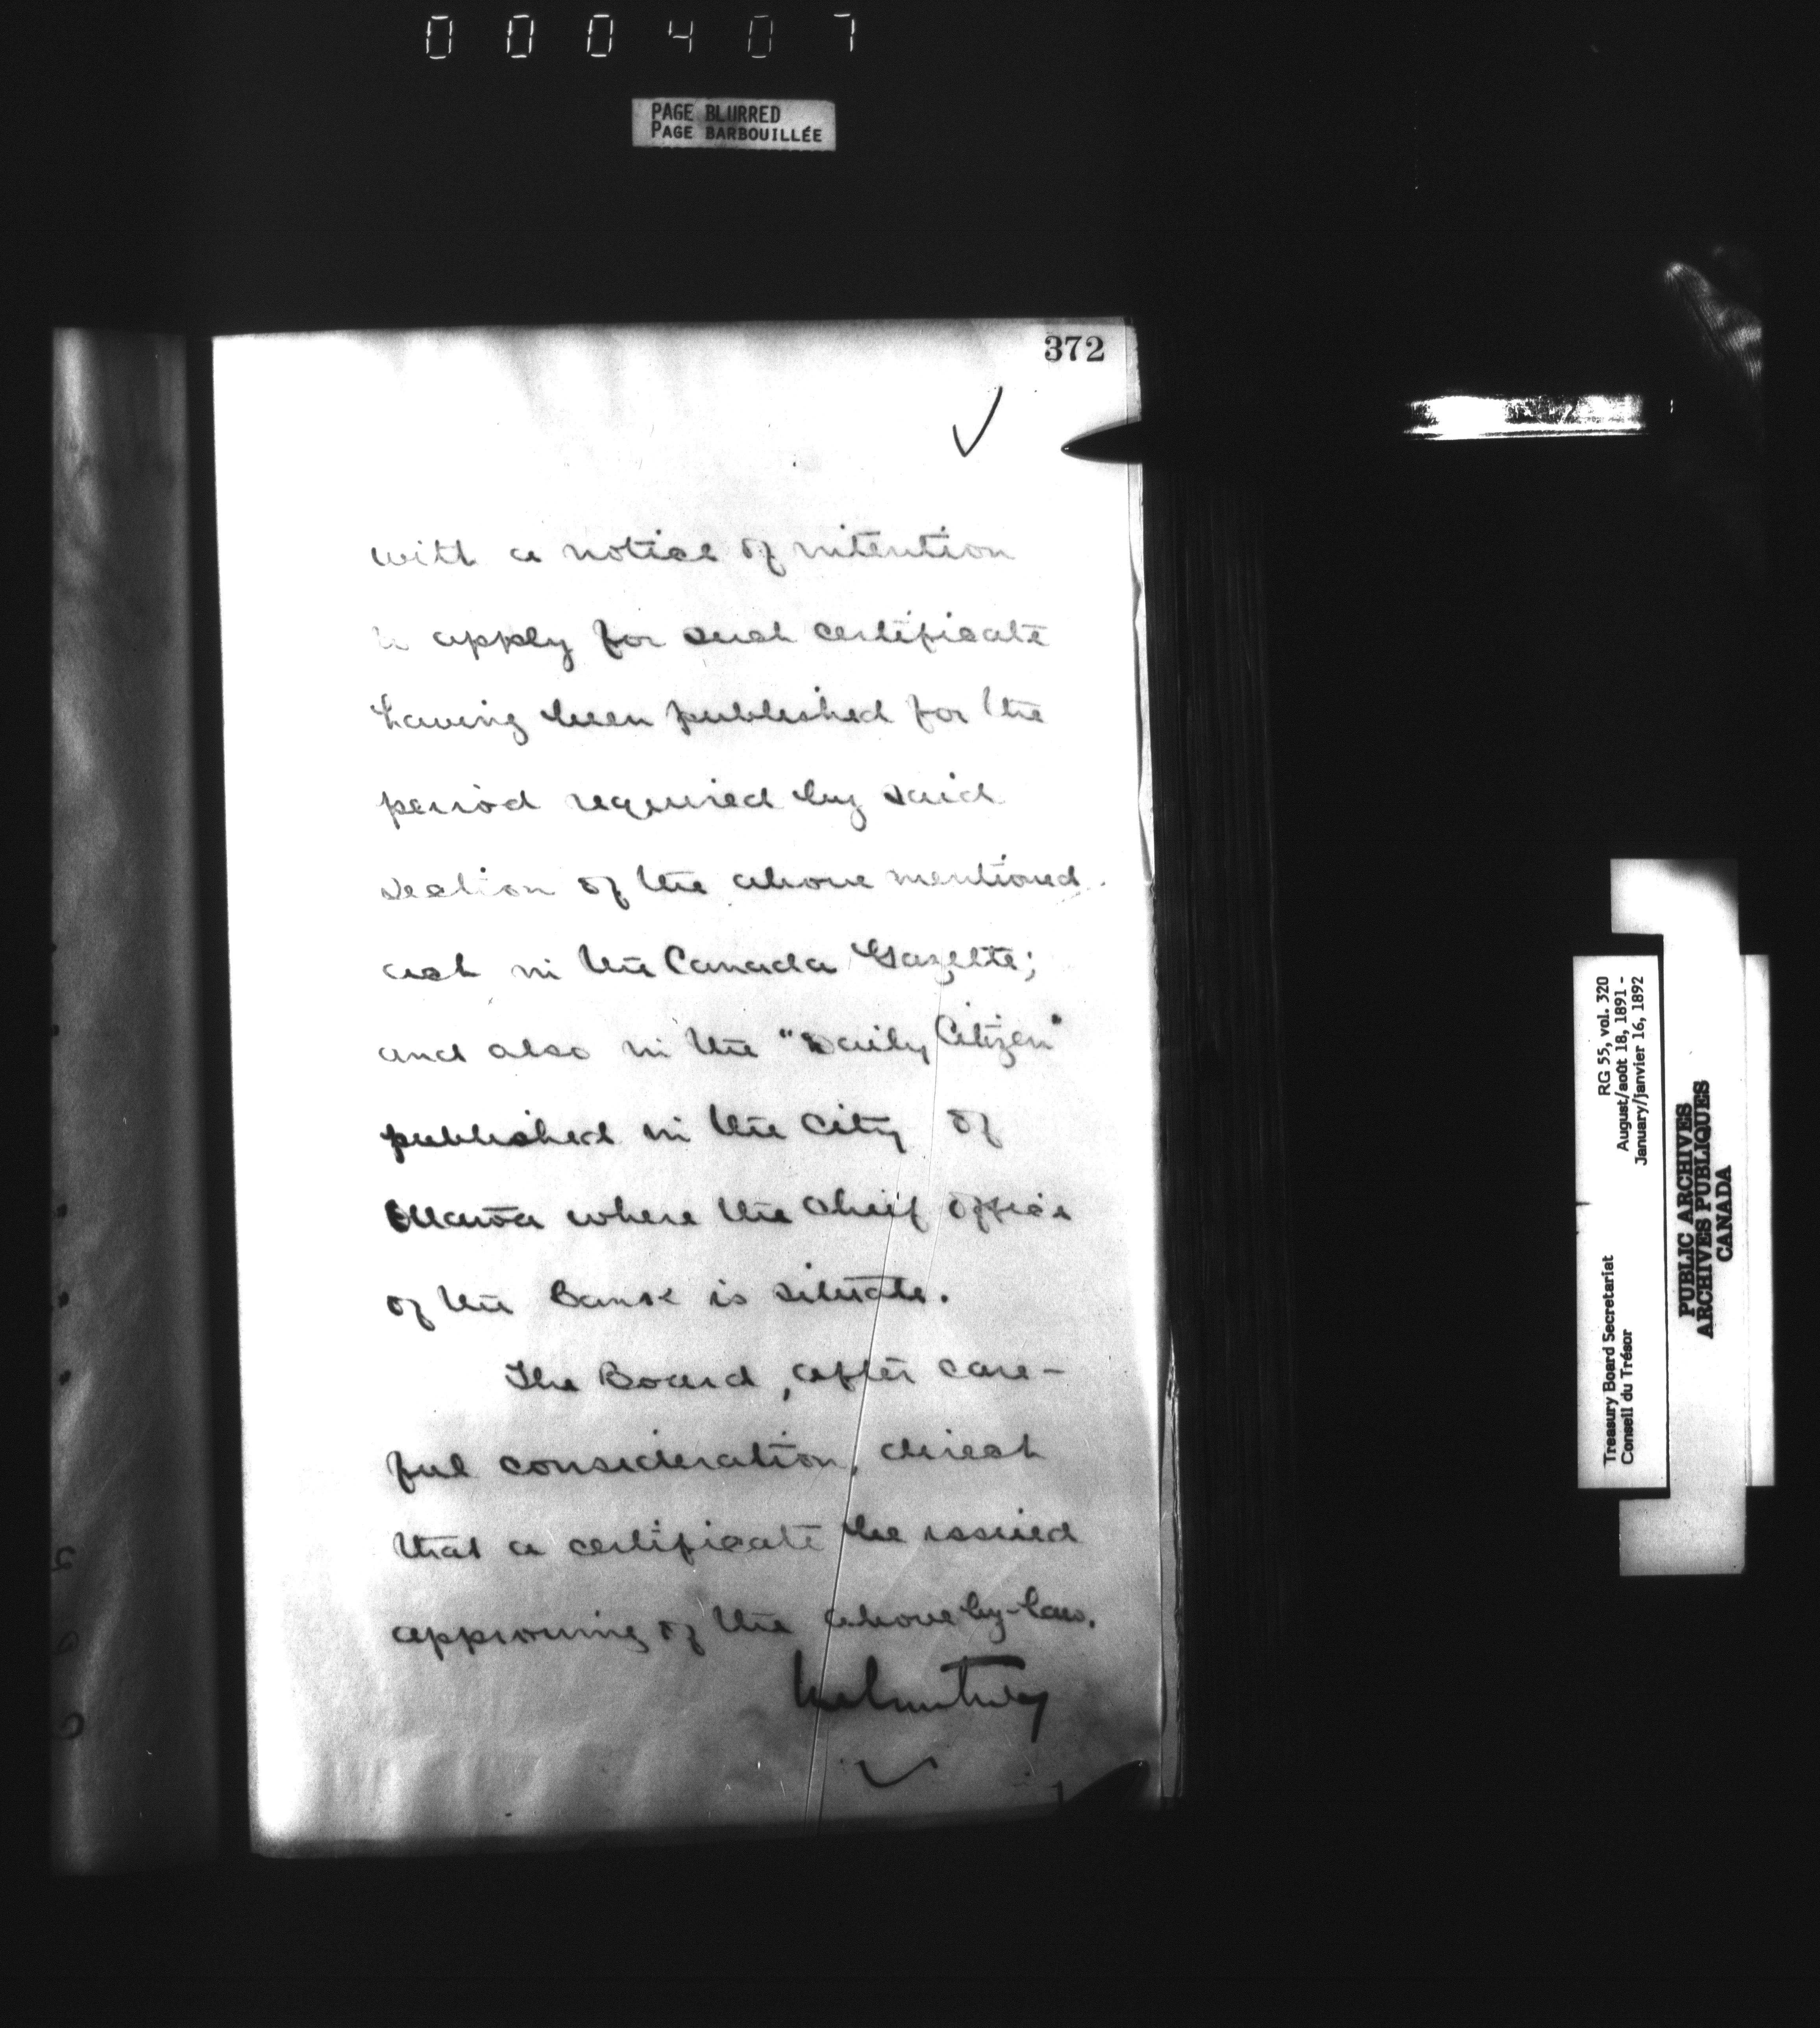 000407
PAGE BLURRED
PAGE BARBOUILLÉE
372
with a notice of intention
to apply for such certificate
having been published for the
period required by said
section of the above mentioned
act in the Canada Gazette;
and also in the "Daily Citizen"
published in the City of
Ottawa where the chief office
of the Bank is situate.
The Board, after care-
ful consideration, direct
that a certificate be issued
approving of the above by-law.
Treasury Board Secretariat
Conseil du Trésor
RG 55, vol. 320
August/août 18, 1891 -
January/janvier 16, 1892
PUBLIC ARCHIVES
ARCHIVES PUBLIQUES
CANADA